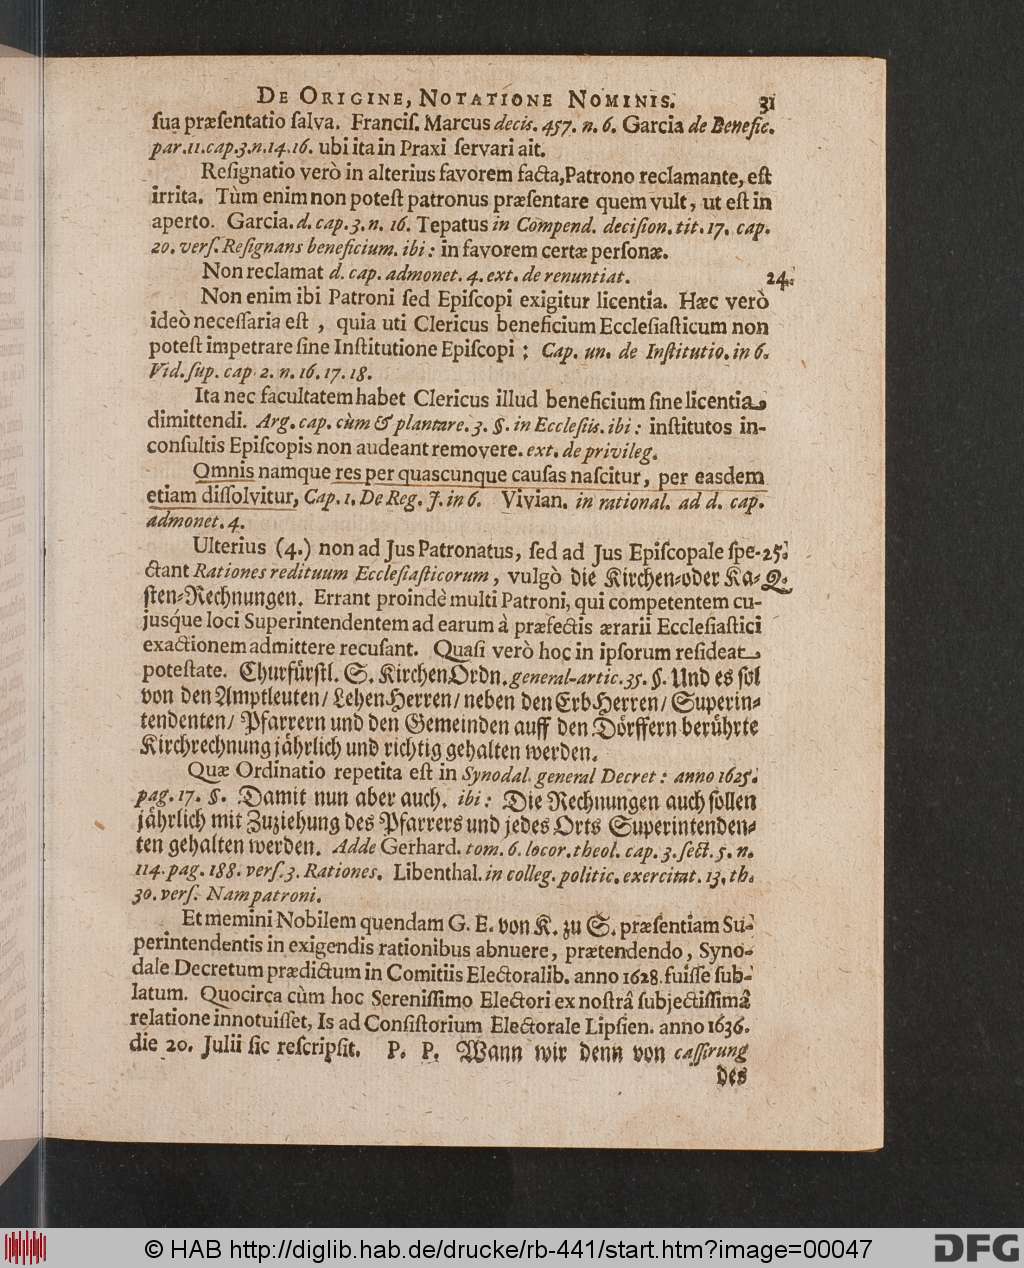 DE ORIGINE, NOTATIONE NOMINIS. 31
ſua præſentatio ſalva. Franciſ. Marcus decis. 457. n. 6. Garcia de Benefic.
par. 11. cap. 3. n. 14. 16. ubi ita in Praxi ſervari ait.
Reſignatio verò in alterius favorem facta, Patrono reclamante, eſt
irrita. Tùm enim non poteſt patronus præſentare quem vult, ut eſt in
aperto. Garcia. d. cap. 3. n. 16. Tepatus in Compend. deciſion. tit. 17. cap.
20. verſ. Reſignans beneficium. ibi: in favorem certæ perſonæ.
Non reclamat d. cap. admonet. 4. ext. de renuntiat. 24.
Non enim ibi Patroni ſed Epiſcopi exigitur licentia. Hæc verò
ideò neceſſaria eſt, quia uti Clericus beneficium Eccleſiaſticum non
poteſt impetrare ſine Inſtitutione Epiſcopi; Cap. un. de Inſtitutio. in 6.
Vid. ſup. cap. 2. n. 16. 17. 18.
Ita nec facultatem habet Clericus illud beneficium ſine licentia
dimittendi. Arg. cap. cùm & plantare. 3. §. in Eccleſiis. ibi: inſtitutos in-
conſultis Epiſcopis non audeant removere. ext. de privileg.
Omnis namque res per quascunque cauſas naſcitur, per easdem
etiam diſſolvitur, Cap. 1. De Reg. J. in 6. Vivian. in rational. ad d. cap.
admonet. 4.
Ulterius (4.) non ad Jus Patronatus, ſed ad Jus Epiſcopale ſpe- 25.
ctant Rationes redituum Eccleſiaſticorum, vulgò die Kirchen- oder Ka- Q.
ſten-Rechnungen. Errant proindè multi Patroni, qui competentem cu-
jusq́ue loci Superintendentem ad earum à præfectis ærarii Eccleſiaſtici
exactionem admittere recuſant. Quaſi verò hoc in ipſorum reſideat
poteſtate. Churfürſtl. S. KirchenOrdn. general-artic. 35. §. Und es ſol
von den Amptleuten/ LehenHerren/ neben den ErbHerren/ Superin-
tendenten/ Pfarrern und den Gemeinden auff den Dörffern berührte
Kirchrechnung jährlich und richtig gehalten werden.
Quæ Ordinatio repetita eſt in Synodal. general Decret: anno 1625.
pag. 17. §. Damit nun aber auch. ibi: Die Rechnungen auch ſollen
jährlich mit Zuziehung des Pfarrers und jedes Orts Superintenden-
ten gehalten werden. Adde Gerhard. tom. 6. locor. theol. cap. 3. ſect. 5. n.
114. pag. 188. verſ. 3. Rationes. Libenthal. in colleg. politic. exercitat. 13. th.
30. verſ. Nam patroni.
Et memini Nobilem quendam G. E. von K. zu S. præſentiam Su-
perintendentis in exigendis rationibus abnuere, prætendendo, Syno-
dale Decretum prædictum in Comitiis Electoralib. anno 1628. fuiſſe ſub-
latum. Quocirca cùm hoc Sereniſſimo Electori ex noſtrâ ſubjectiſſimâ
relatione innotuiſſet, Is ad Conſiſtorium Electorale Lipſien. anno 1636.
die 20. Julii ſic reſcripſit. P. P. Wann wir denn von caſſirung
des
© HAB http://diglib.hab.de/drucke/rb-441/start.htm?image=00047
DFG